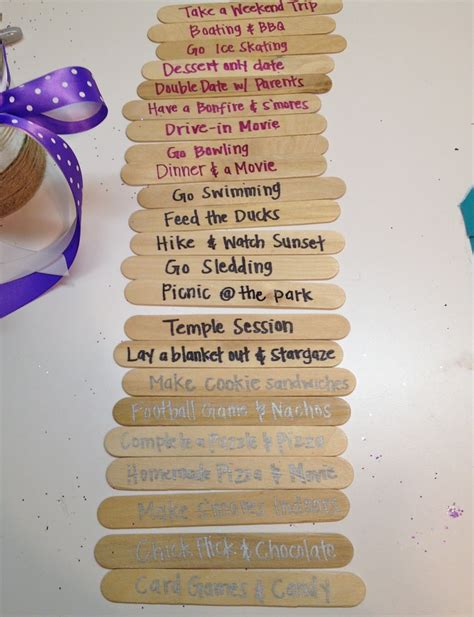 Take a Weekend Trip
Boating & BBQ
Go Ice Skating
Dessert only date
Double Date w/ Parents
Have a Bonfire & s'mores
Drive-in Movie
Go Bowling
Dinner & a Movie
Go Swimming
Feed the Ducks
Hike & Watch Sunset
Go Sledding
Picnic @ the park
Temple Session
Lay a blanket out & stargaze
Make Cookie sandwiches
Football Game & Nachos
Complete a Puzzle & Pizza
Homemade Pizza & Movie
Make S'mores Indoors
Chick Flick & Chocolate
Card Games & Candy